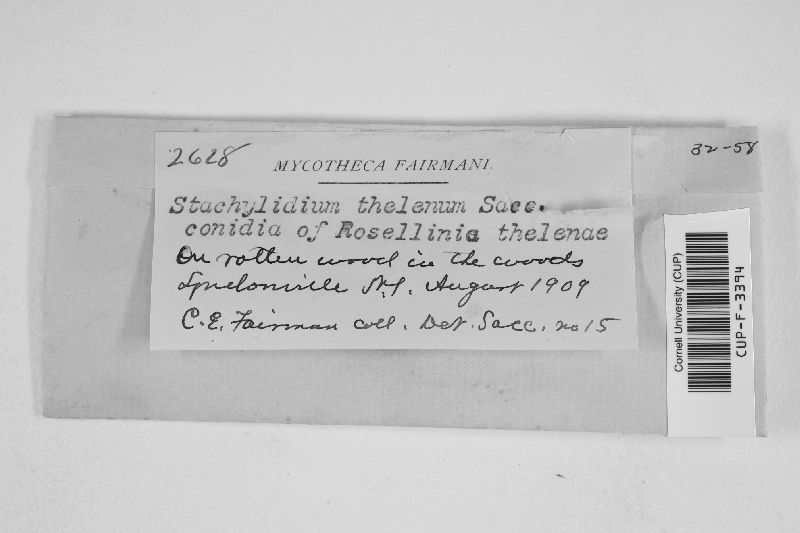 2628
MYCOTHECA FAIRMANI.
32-58
Stachylidium thelenum Sacc.
conidia of Rosellinia thelenae
On rotten wood in the woods
Lyndonville N.Y. August 1909
C.E. Fairman coll. Det. Sacc. no 15
Cornell University (CUP)
CUP-F-3394